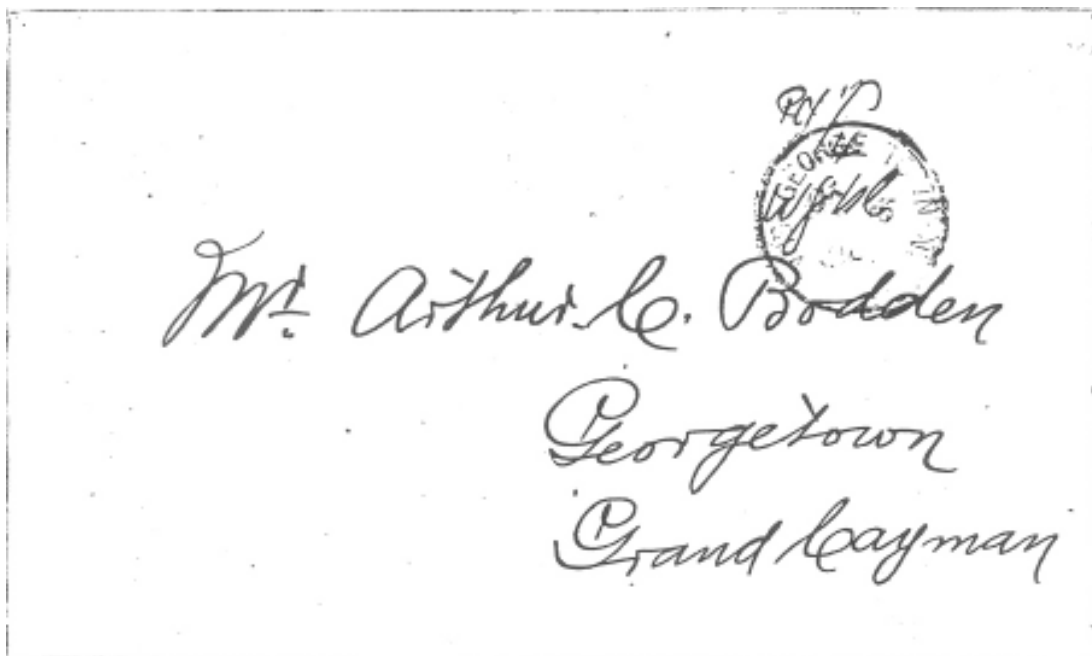 GEORGE
Mr. Arthur. C. Bodden
Georgetown
Grand Cayman